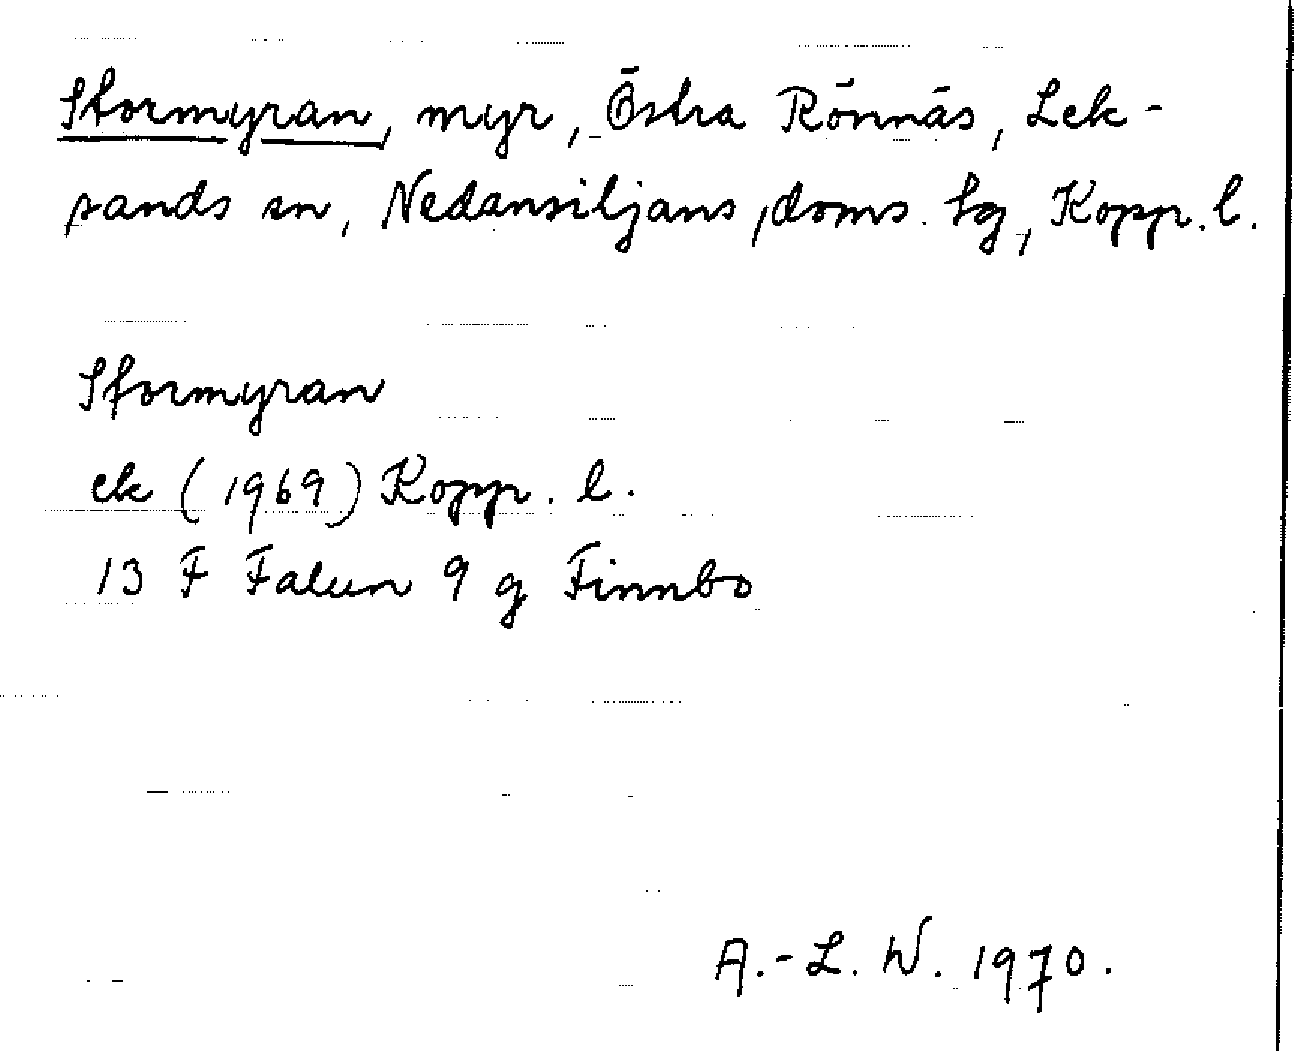 Stormyran, myr, Östra Rönnäs, Lek-
sands sn, Nedansiljans doms. tg, Kopp. l.
Stormyran
ek (1969) Kopp. l.
13 F Falun 9 g Finnbo
A.-L. W. 1970.